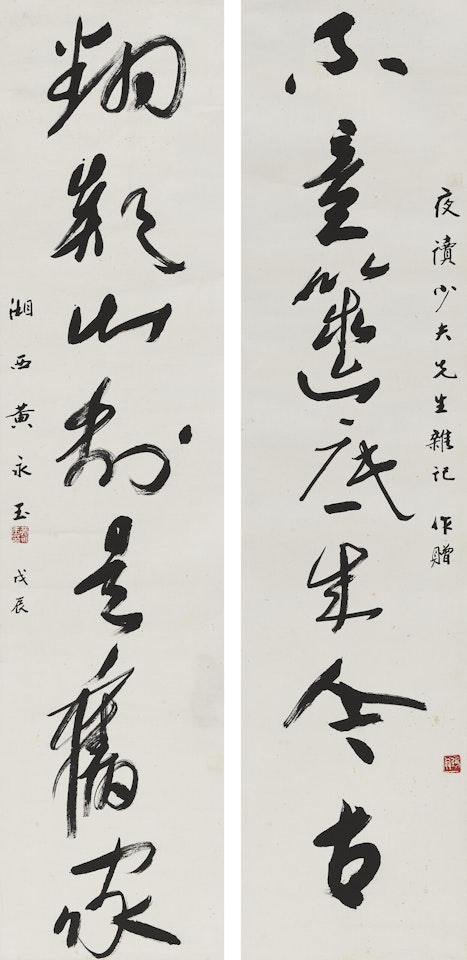 夜讀少夫先生雜記 作贈
不意篋底成今古
翻疑此刻是舊家
湘西黃永玉 戊辰